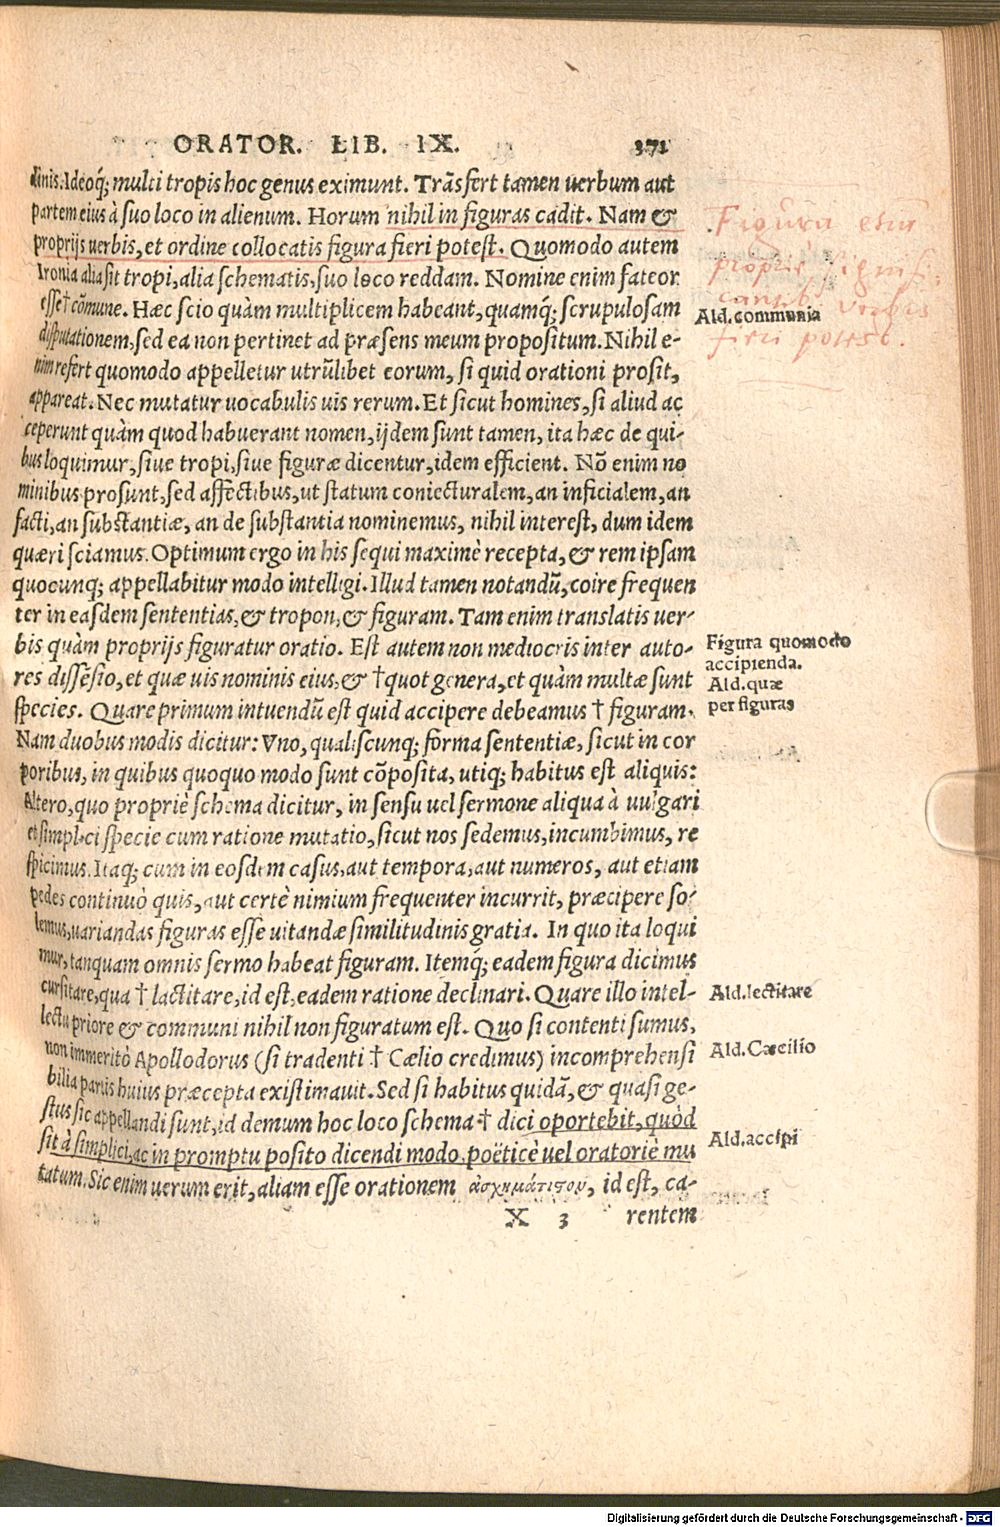 ORATOR. LIB. IX. 371
dinis. Ideoq́; multi tropis hoc genus eximunt. Trãsfert tamen uerbum aut
partem eius à suo loco in alienum. Horum nihil in figuras cadit. Nam &
proprijs uerbis, et ordine collocatis figura fieri potest. Quomodo autem
Ironia alia sit tropi, alia schematis, suo loco reddam. Nomine enim fateor
esse † cõmune. Hæc scio quàm multiplicem habeant, quamq́; scrupulosam
disputationem, sed ea non pertinet ad præsens meum propositum. Nihil e-
nim refert quomodo appelletur utrũlibet eorum, si quid orationi prosit,
appareat. Nec mutatur uocabulis uis rerum. Et sicut homines, si aliud ac
ceperunt quàm quod habuerant nomen, ijdem sunt tamen, ita hæc de qui-
bus loquimur, siue tropi, siue figuræ dicentur, idem efficient. Nõ enim no
minibus prosunt, sed affectibus, ut statum coniecturalem, an inficialem, an
facti, an substantiæ, an de substantia nominemus, nihil interest, dum idem
quæri sciamus. Optimum ergo in his sequi maximè recepta, & rem ipsam
quocunq; appellabitur modo intelligi. Illud tamen notandũ, coire frequen
ter in easdem sententias, & tropon, & figuram. Tam enim translatis uer-
bis quàm proprijs figuratur oratio. Est autem non mediocris inter auto-
res dissẽsio, et quæ uis nominis eius, & † quot genera, et quàm multæ sunt
species. Quare primum intuendũ est quid accipere debeamus † figuram.
Nam duobus modis dicitur: Vno, qualiscunq; forma sententiæ, sicut in cor
poribus, in quibus quoquo modo sunt cõposita, utiq; habitus est aliquis:
Altero, quo propriè schema dicitur, in sensu uel sermone aliqua à uulgari
et simplici specie cum ratione mutatio, sicut nos sedemus, incumbimus, re
spicimus. Itaq; cum in eosdem casus, aut tempora, aut numeros, aut etiam
pedes continuò quis, aut certè nimium frequenter incurrit, præcipere so-
lemus, uariandas figuras esse uitandæ similitudinis gratia. In quo ita loqui
mur, tanquam omnis sermo habeat figuram. Itemq; eadem figura dicimus
cursitare, qua † lactitare, id est, eadem ratione declinari. Quare illo intel-
lectu priore & communi nihil non figuratum est. Quo si contenti sumus,
non immeritò Apollodorus (si tradenti † Cælio credimus) incomprehensi
bilia partis huius præcepta existimauit. Sed si habitus quidã, & quasi ge-
stus sic appellandi sunt, id demum hoc loco schema † dici oportebit, quòd
sit à simplici, ac in promptu posito dicendi modo, poëticè uel oratoriè mu
tatum. Sic enim uerum erit, aliam esse orationem ἀσχημάτιστον, id est, ca-
X 3 rentem
Figura etiã
proprie signifi
cantib. verbis
fieri potest.
Ald. communia
Figura quomodo
accipienda.
Ald. quæ
per figuras
Ald. lectitare
Ald. Cæcilio
Ald. accipi
Digitalisierung gefördert durch die Deutsche Forschungsgemeinschaft - DFG